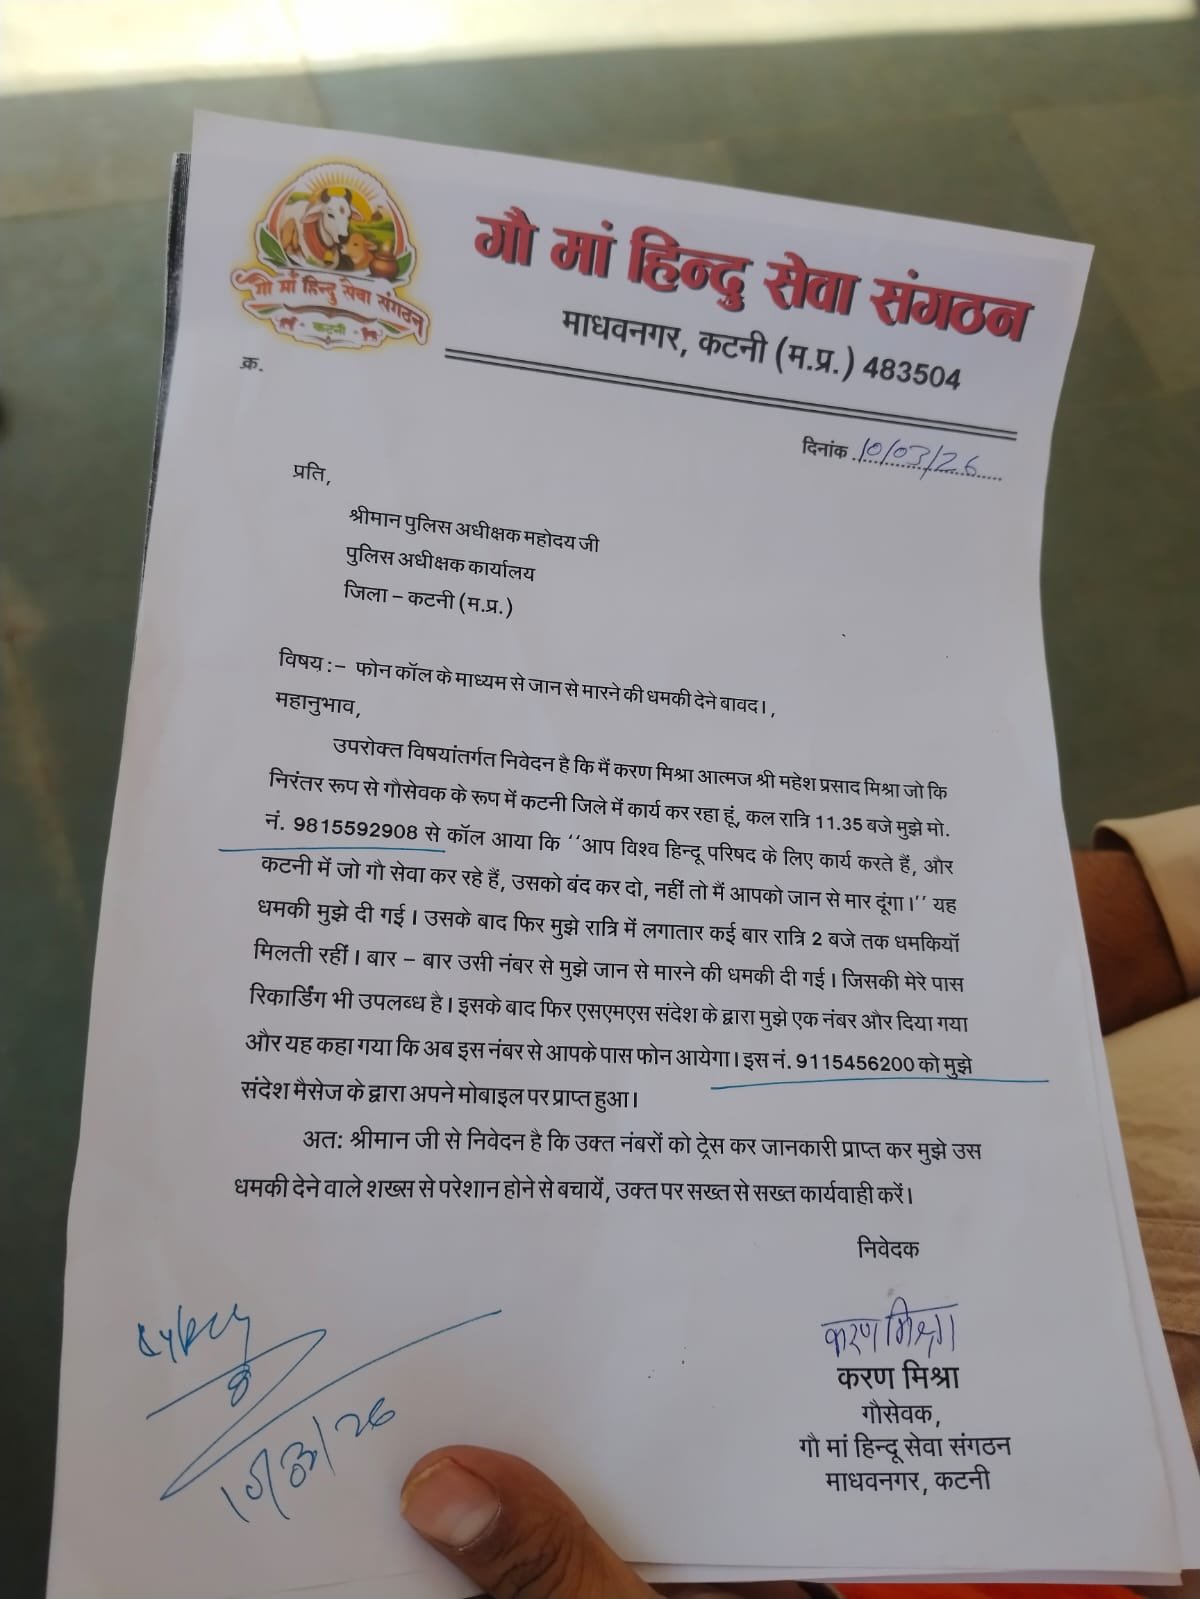 गौ मां हिन्दु सेवा संगठन
कटनी
गौ मां हिन्दु सेवा संगठन
माधवनगर, कटनी (म.प्र.) 483504
क्र.
दिनांक 10/03/26
प्रति,
श्रीमान पुलिस अधीक्षक महोदय जी
पुलिस अधीक्षक कार्यालय
जिला – कटनी (म.प्र.)
विषय :– फोन कॉल के माध्यम से जान से मारने की धमकी देने बावद।,
महानुभाव,
उपरोक्त विषयांतर्गत निवेदन है कि मैं करण मिश्रा आत्मज श्री महेश प्रसाद मिश्रा जो कि
निरंतर रूप से गौसेवक के रूप में कटनी जिले में कार्य कर रहा हूं, कल रात्रि 11.35 बजे मुझे मो.
नं. 9815592908 से कॉल आया कि ‘‘आप विश्व हिन्दू परिषद के लिए कार्य करते हैं, और
कटनी में जो गौ सेवा कर रहे हैं, उसको बंद कर दो, नहीं तो मैं आपको जान से मार दूंगा।’’ यह
धमकी मुझे दी गई। उसके बाद फिर मुझे रात्रि में लगातार कई बार रात्रि 2 बजे तक धमकियॉ
मिलती रहीं। बार – बार उसी नंबर से मुझे जान से मारने की धमकी दी गई। जिसकी मेरे पास
रिकार्डिंग भी उपलब्ध है। इसके बाद फिर एसएमएस संदेश के द्वारा मुझे एक नंबर और दिया गया
और यह कहा गया कि अब इस नंबर से आपके पास फोन आयेगा। इस नं. 9115456200 को मुझे
संदेश मैसेज के द्वारा अपने मोबाइल पर प्राप्त हुआ।
अत: श्रीमान जी से निवेदन है कि उक्त नंबरों को ट्रेस कर जानकारी प्राप्त कर मुझे उस
धमकी देने वाले शख्स से परेशान होने से बचायें, उक्त पर सख्त से सख्त कार्यवाही करें।
निवेदक
करण मिश्रा
करण मिश्रा
गौसेवक,
गौ मां हिन्दू सेवा संगठन
माधवनगर, कटनी
10/03/26